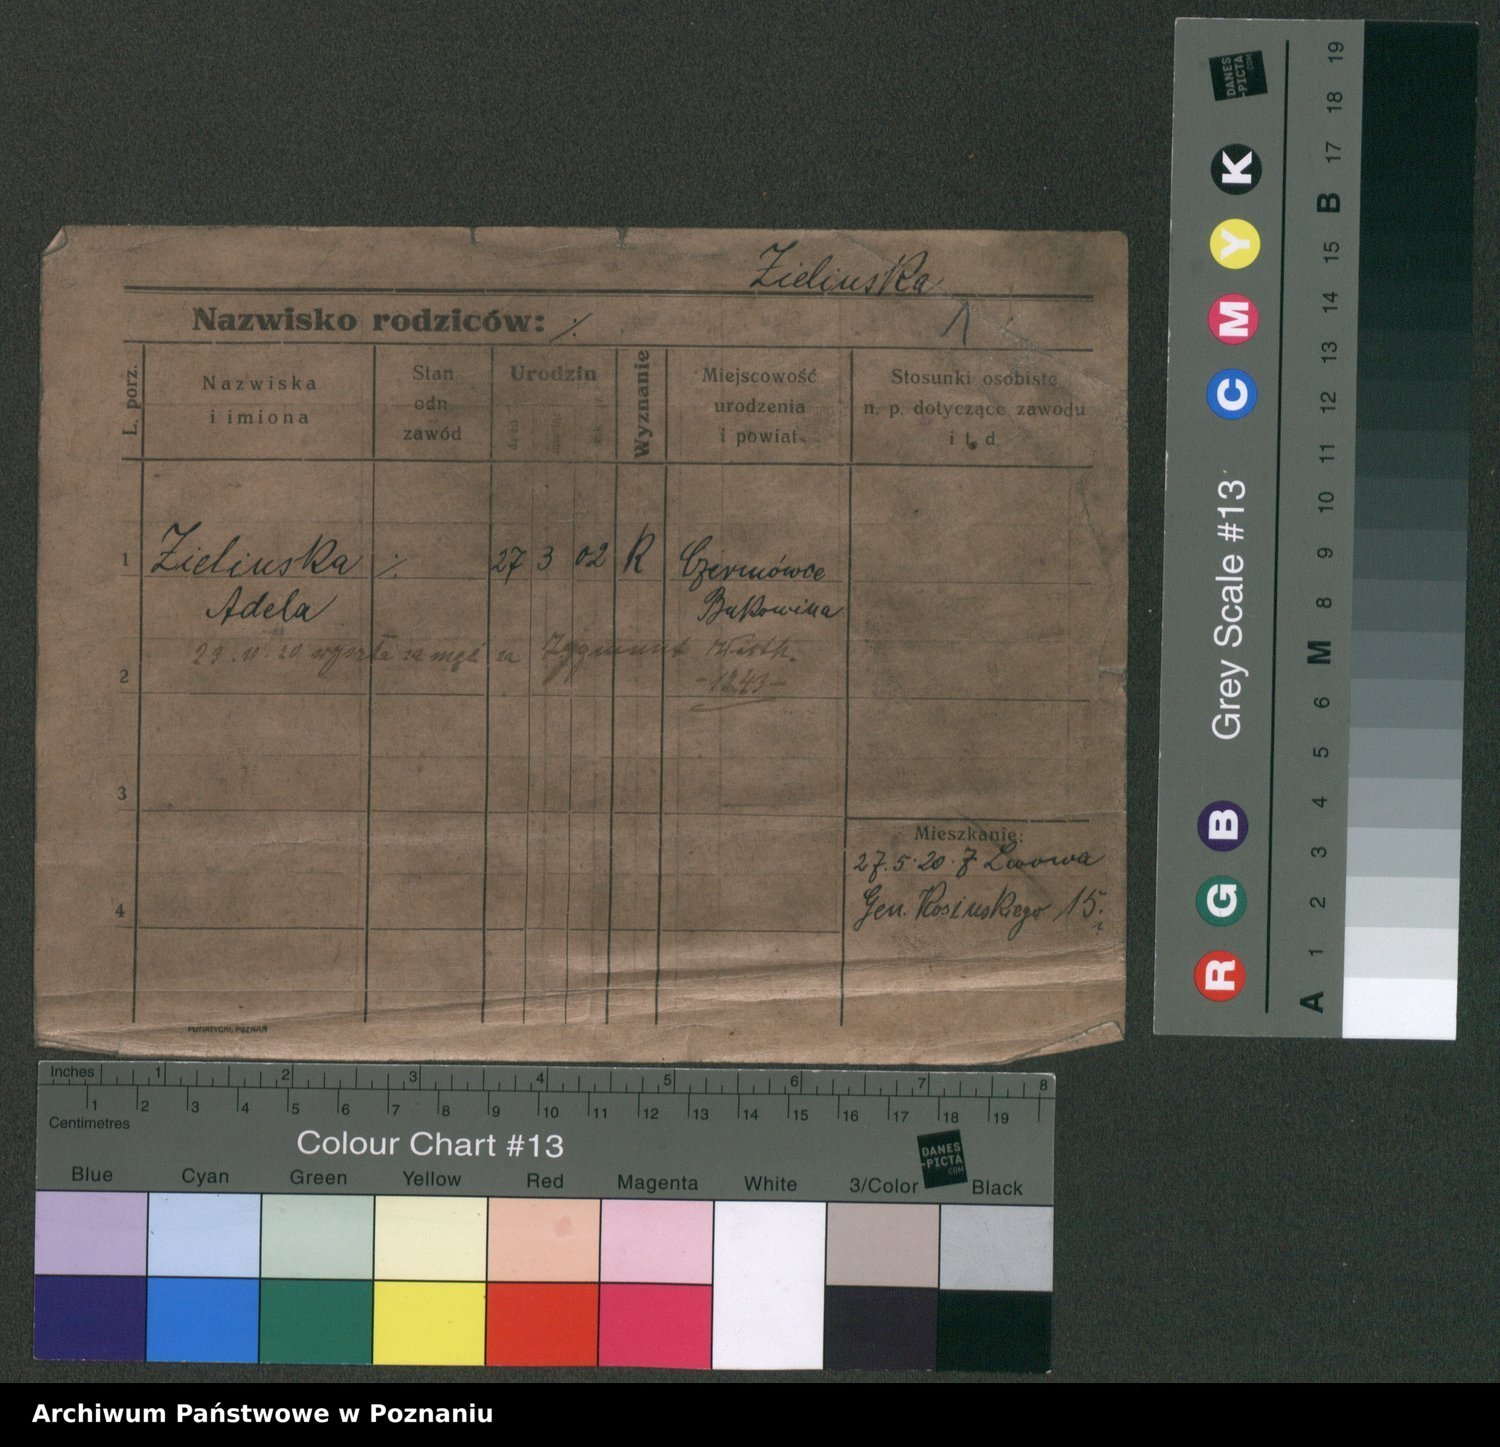 Zielinska
Nazwisko rodziców: ·/.
1
L. porz.
Nazwiska
i imiona
Stan
odn.
zawód
Urodzin
Wyznanie
Miejscowość
urodzenia
i powiat.
Stosunki osobiste
n. p. dotyczące zawodu
i t. d
1 Zielinska ·/. 27 3 02 R Czernówce
Adela Bukowina
29. 10. 20 wyszła za mąż za Zygmunt Wirth.
2 -1243-
3
Mieszkanie:
27.5.20. Z Lwowa
4 Gen. Kosinskiego 15.
POZNAŃ
DANES
-PICTA
.COM
K
Y
M
C
Grey Scale #13
B
G
R
19
18
17
B
15
14
13
12
11
10
9
8
M
6
5
4
3
2
1
A
Inches 1 2 3 4 5 6 7 8
1 2 3 4 5 6 7 8 9 10 11 12 13 14 15 16 17 18 19
Centimetres
Colour Chart #13
DANES
-PICTA
.COM
Blue Cyan Green Yellow Red Magenta White 3/Color Black
Archiwum Państwowe w Poznaniu